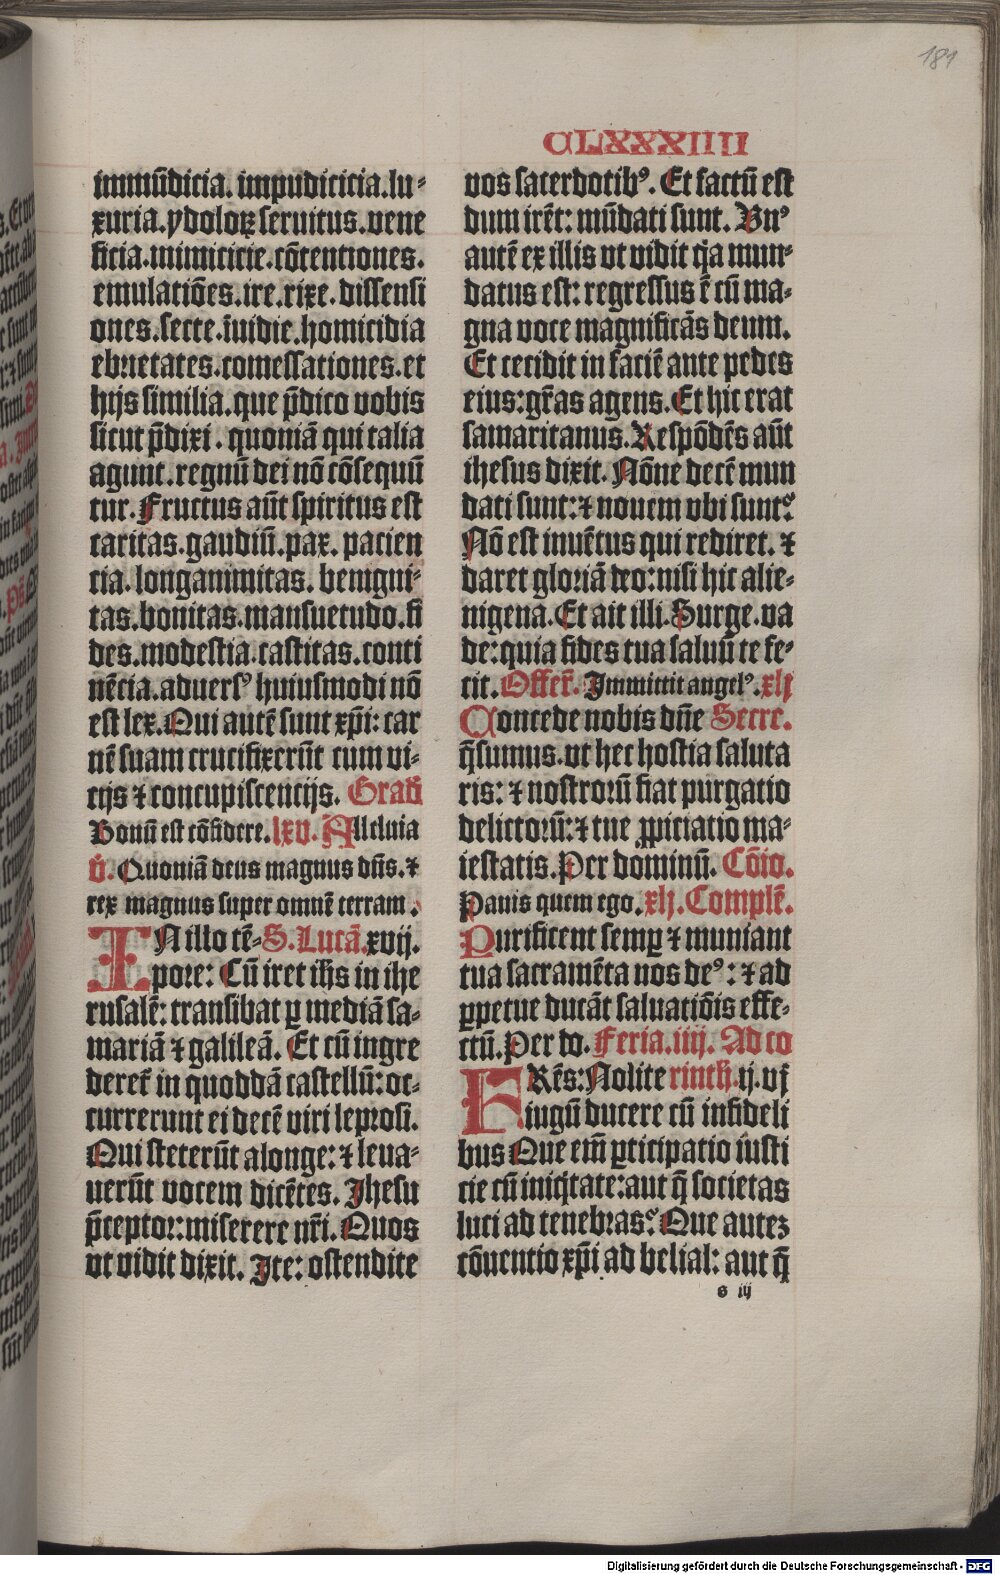 181
CLXXXIIII
immūdicia. impudicicia. lu-
xuria. ydoloꝝ seruitus. vene
ficia. inimicicie. cōtentiones.
emulatiōes. ire. rixe. dissensi
ones. secte. īuidie. homicidia
ebrietates. comessationes. et
hijs similia. que p̄dico vobis
sicut p̄dixi. quoniā qui talia
agunt. regnū dei nō cōsequū
tur. Fructus aūt spiritus est
caritas. gaudiū. pax. pacien
cia. longanimitas. benigni-
tas. bonitas. mansuetudo. fi
des. modestia. castitas. conti
nēcia. aduersꝰ huiusmodi nō
est lex. Qui autē sunt xp̄i: car
nē suam crucifixerūt cum vi-
cijs ⁊ concupiscencijs. Gradū
Bonū est cōfidere. lxv. Alleluia
v̄. Quoniā deus magnus dn̄s. ⁊
rex magnus super omnē terram.
IN illo tē- S. Lucā. xvij.
pore: Cū iret ih̄s in ihe
rusalē: transibat ꝑ mediā sa-
mariā ⁊ galileā. Et cū ingre
deret̄ in quoddā castellū: oc-
currerunt ei decē viri leprosi.
Qui steterūt a longe: ⁊ leua-
uerūt vocem dicētes. Ihesu
p̄ceptor: miserere nr̄i. Quos
vt vidit dixit. Ite: ostendite
vos sacerdotibꝰ. Et factū est
dum irēt: mūdati sunt. Vnꝰ
autē ex illis vt vidit q̇a mun-
datus est: regressus ē cū ma-
gna voce magnificās deum.
Et cecidit in faciē ante pedes
eius: gr̄as agens. Et hic erat
samaritanus. Respōdēs aūt
ihesus dixit. Nōne decē mun
dati sunt: ⁊ nouem vbi sunt?
Nō est inuētus qui rediret. ⁊
daret gloriā deo: nisi hic alie-
nigena. Et ait illi. Surge. va
de: quia fides tua saluū te fe-
cit. Offer̄. Immittit angelꝰ. xlj
Concede nobis dn̄e Secre.
q̄sumus. vt hec hostia saluta
ris: ⁊ nostrorū fiat purgatio
delictorū: ⁊ tue ꝓpiciatio ma-
iestatis. Per dominū. Cōio.
Panis quem ego. xlj. Complē.
Purificent semꝑ ⁊ muniant
tua sacramēta nos deꝰ: ⁊ ad
ꝑpetue ducāt saluatiōis effe-
ctū. Per do. Feria. iiij. Ad co
FRēs: Nolite rinth. ij. vj
iugū ducere cū infideli
bus Que em̄ ꝑticipatio iusti
cie cū iniq̇tate: aut q̄ societas
luci ad tenebras? Que autez
cōuentio xp̄i ad belial: aut q̄
s iij
Digitalisierung gefördert durch die Deutsche Forschungsgemeinschaft - DFG